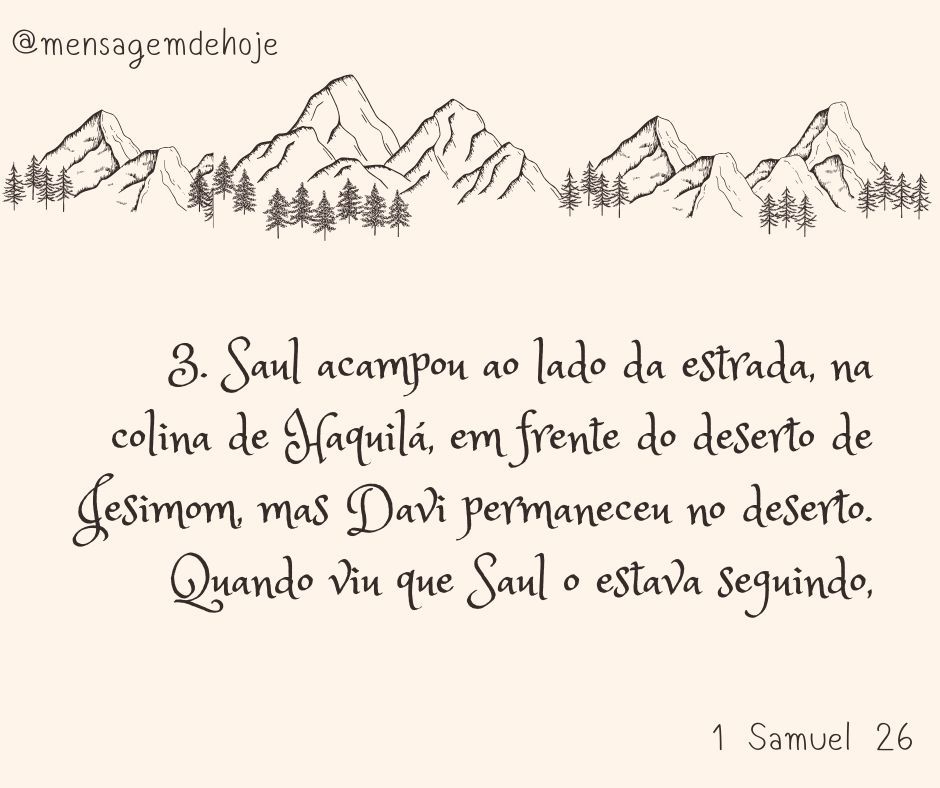 @mensagemdehoje
3. Saul acampou ao lado da estrada, na
colina de Haquilá, em frente do deserto de
Jesimom, mas Davi permaneceu no deserto.
Quando viu que Saul o estava seguindo,
1 Samuel 26